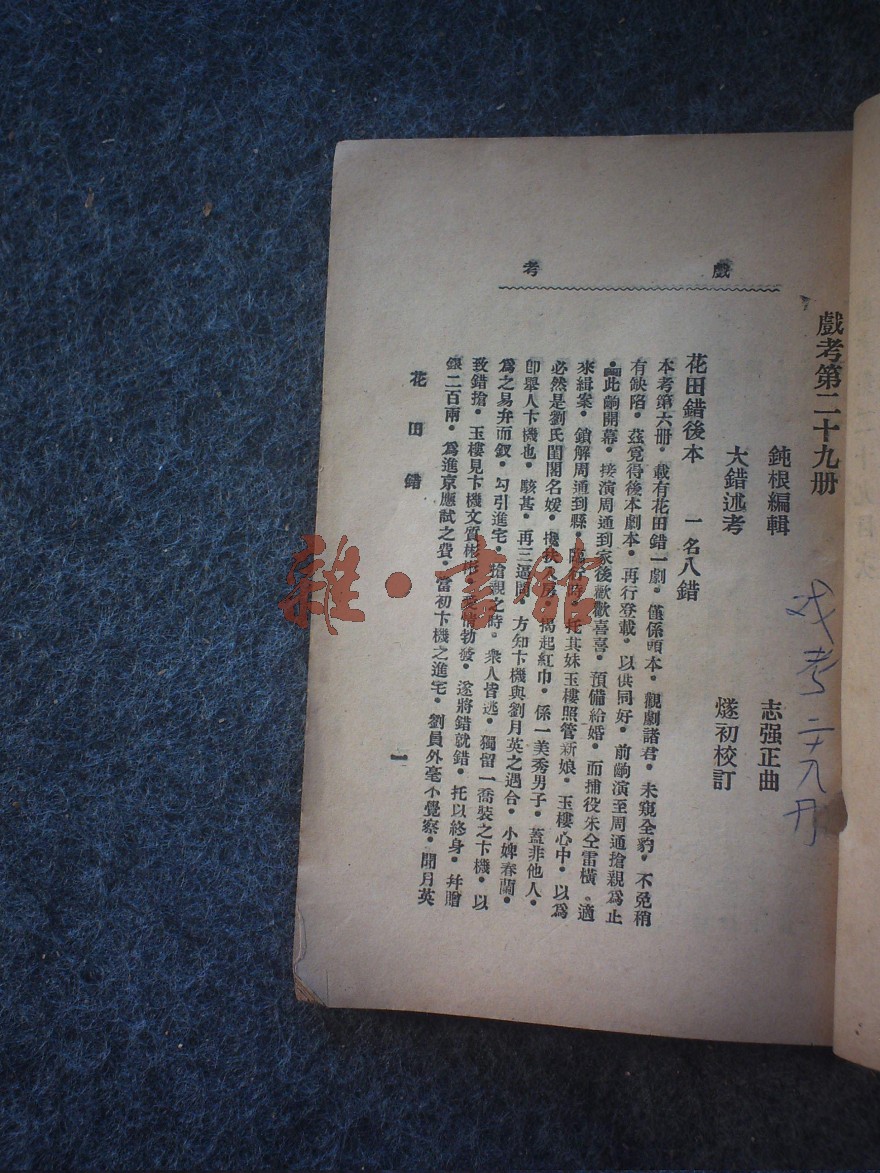 戲考第二十九册
鈍根編輯 志强正曲
大錯述考 燧初校訂
戲考
花田錯後本 一名八錯
本考第六册•載有花田錯一劇•僅係頭本•觀劇諸君•未窺全豹•不免稍
有缺陷•茲覓得後本劇本•再行登載•以供同好•前齣演至周通搶親爲止
•此齣開幕•接演周通到家後歡歡喜喜•預備給婚•而捕役朱仝雷橫•適
來緝案•鎖解周通到縣•臨行時•托其妹玉樓照管新娘•玉樓心中•以爲
必然是劉氏閨閣名媛•攙扶入房•揭起紅巾•係一美秀男子•蓋非他人•
卽舉人卞機也•駭甚•再三逼問•方知卞機與劉月英之遇合•小婢春蘭•
爲之易弁而釵•勾引進宅•搶親之時•衆人皆逃•獨留一喬裝之卞機•以
致錯搶•玉樓見卞機文質彬彬•愛情勃發•遂將錯就錯•托以終身•幷贈
銀二百兩•爲進京應試之費•當初卞機之進宅•劉員外毫不覺察•聞月英
花田錯
一
戏考二十九册
雜•書館